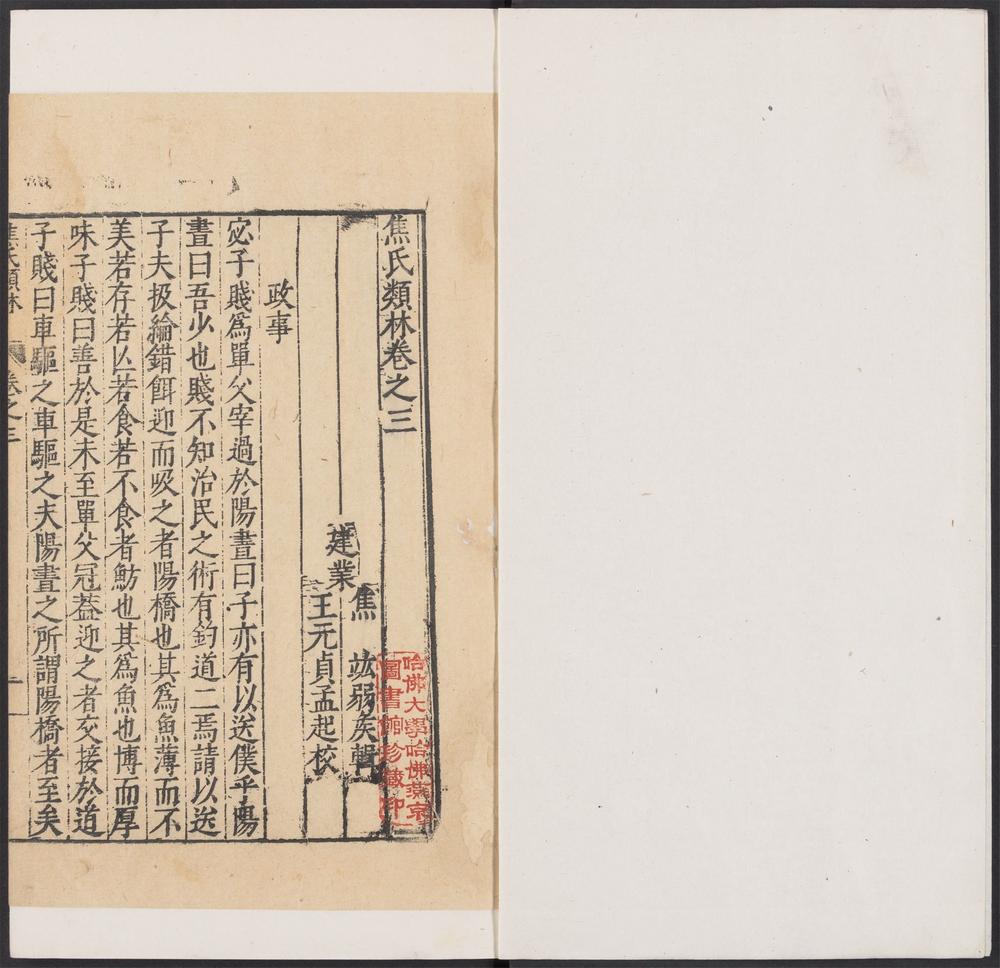 焦氏類林卷之三
建業
焦　竑弱矦輯
王元貞孟起校
政事
宓子賤爲單父宰過於陽晝曰子亦有以送僕乎陽
晝曰吾少也賤不知治民之術有釣道二焉請以送
子夫扱綸錯餌迎而吸之者陽橋也其爲魚薄而不
美若存若亾若食若不食者魴也其爲魚也博而厚
味子賤曰善於是未至單父冠葢迎之者交接於道
子賤曰車驅之車驅之夫陽晝之所謂陽橋者至矣
焦氏類林
卷之三
一
哈佛大學哈佛燕京
圖書館珍藏印